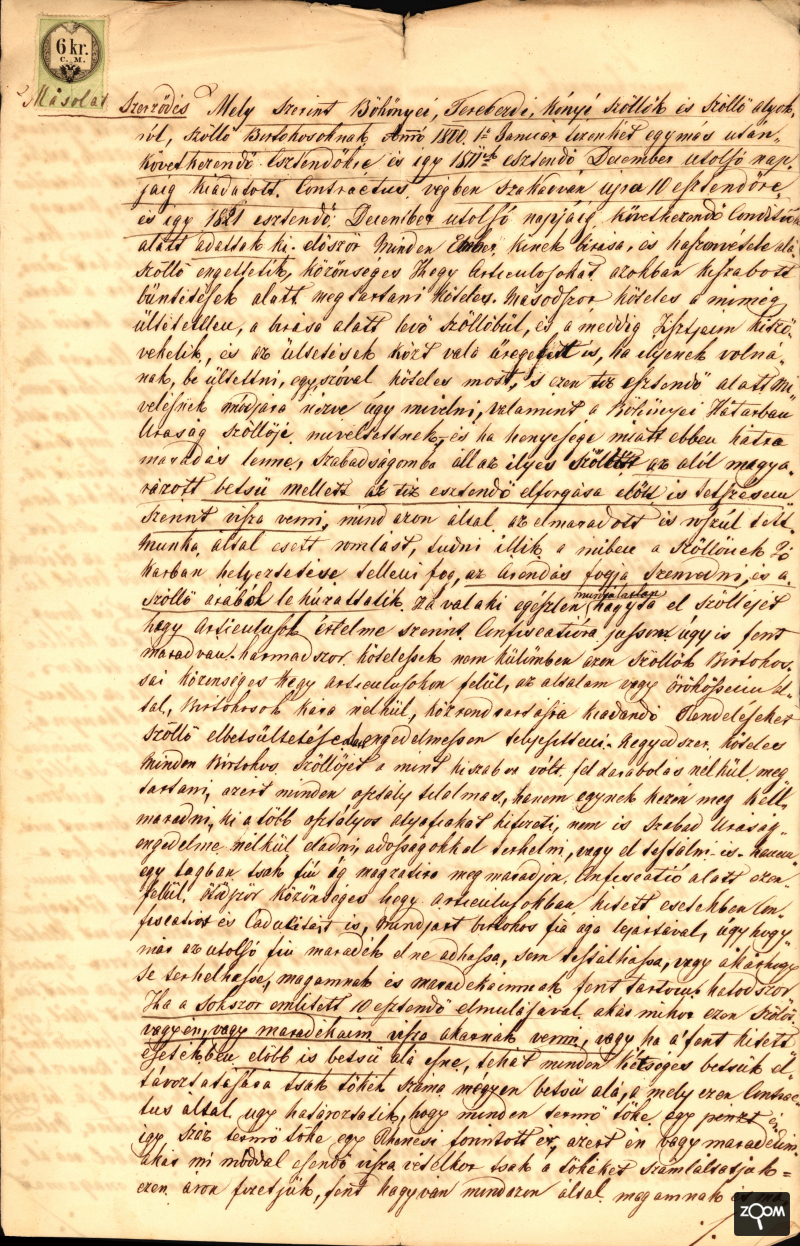 6 kr.
C. M.
Másolat Szerződés Mely szerint Bőhönyei, Tereberdi, Kónyi szöllők és szöllő alyok,
ról, szöllő Birtokosoknak Anno 1800. 1ª Januar tizenkét egymás után
következendő Esztendőkre és így 1811ik esztendő December utolsó nap,
jáig kiadatott. Contractus végben szakadván újra 10 esztendőre,
és így 1821 esztendő December utolsó napjáig, következendő Conditiók
alatt adattak ki. először Minden Ember, kinek birása, és haszonvétele alá
szöllő engettetik, közönséges Hegy Articulusokat azokban kiszabott
büntetések alatt megtartani köteles. Másodszor köteles a mimég
ültetetlen, a birása alatt levő szöllőbül, és, a meddig
és az ültetések közt való üregeket is, ha ilyenek volná,
nak, be ültetni, egyszóval köteles most, 's ezen tiz esztendő alatt mi
velésnek módjára nézve úgy mivelni, valamint a Bőhönyei Határban
Uraság szöllője miveltetnek, és ha henyesége miatt ebben hátra
maradás lenne, szabadságomba áll az ilyes szöllőt az alól magya,
rázott betsű mellett az tiz esztendő elforgása előtt is tetszésem
szerint visza venni, mind azon által az elmaradott és roszúl tett
munka által esett romlást, tudni illik a miben a szöllőnek Jó
karban helyeztetése telleni fog, az Arendás fogja szenvedni, és a
szöllő arából le húzattatik. Ha valaki egészlen munkálatlan hagyta el szöllejét
hogy Articulusok értelme szerint Confiscatióra jusson, úgy is fent
maradván. harmadszor kötelessek nem külömben ezen szöllők Birtokos,
sai közönséges Hegy articulusokon felül, az általam vagy örökösseim ál,
tal, Birtokosok kára nélkül, közrendtartásra kiadandó Rendeléseket
Szöllő elbetsültetése alatt engedelmessen teljesitteni. Negyedszer, köteles
Minden Birtokos szöllőjét a mint kiszabva vólt fel darabolás nélkül meg
tartani, azért minden osztály tilalmas, hanem egynek kezén meg kell
maradni, ki a több osztályos atyafiakat kifizeti, nem is szabad Uraság,
engedelme nélkül eladni, adósságokkal terhelni, vagy el testálni is. hanem
egy tagban tsak fiú ág magzatira meg maradjon. Confiscatió alatt ezen
felül. Ötödször közönséges hegy articulusokban kitett esetekben Con,
fiscatiót és Caducitást is, Mindjárt birtokos fiú ága lejártával, úgy hogy
már az utolsó fiú maradék el ne adhassa, sem testálhassa, vagy akárhogy
se terhelhesse, magamnak és maradékaimnak fent tartom. hatodszor
Ha a sokszor emlitett 10 esztendő elmulásával, akár mikor ezen szőlőt
vagy én, vagy maradékaim visza akarnák venni, vagy ha a' fent kitett
esetekben előbb is betsű alá esne, tehát minden kétséges betsük el,
távoztatására tsak tőkék száma mégyen betsű alá, a mely ezen Contrac,
tus által úgy határoztatik, hogy minden termő tőke egy pénzt és
így száz termő tőke egy Rhenesi forintott ér, azért én vagy maradékim
akár mi móddal esendő visza vételkor tsak a tőkéket számláltatjuk
ezen áron fizetjük, fent hagyván mindazon által magamnak és ma,
ZOOM